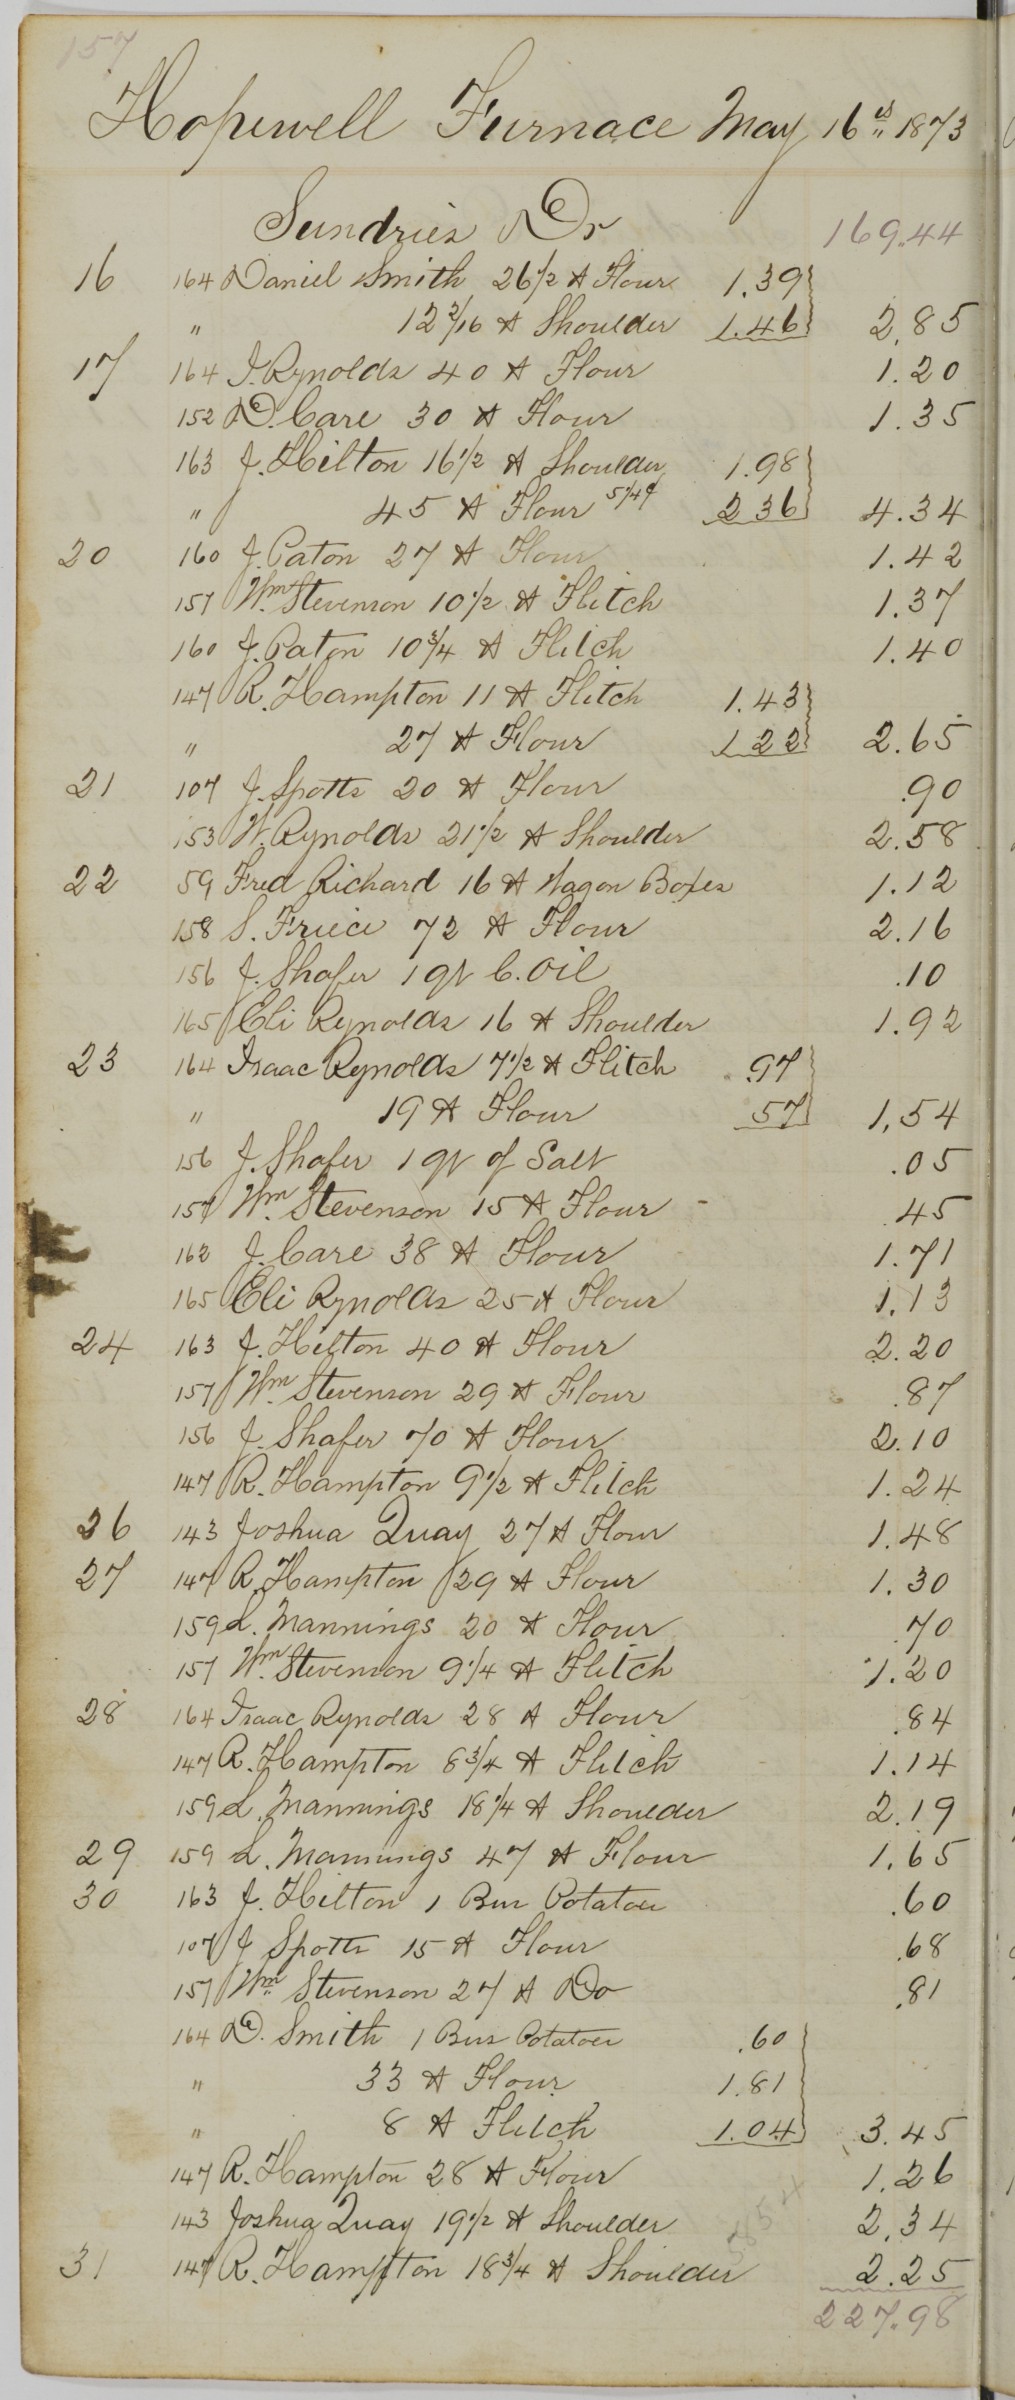 157
Hopewell Furnace May 16th 1873
Sundries Dr 169.44
16 164 Daniel Smith 26 1/2 # Flour 1.39
" 12 2/16 # Shoulder 1.46 2.85
17 164 I. Rynolds 40 # Flour 1.20
152 D. Care 30 # Flour 1.35
163 J. Hilton 16 1/2 # Shoulder 1.98
" 45 # Flour 5 1/4 ¢ 2 36 4.34
20 160 J. Paton 27 # Flour 1.42
157 Wm. Stevenson 10 1/2 # Flitch 1.37
160 J. Paton 10 3/4 # Flitch 1.40
147 R. Hampton 11 # Flitch 1.43
" 27 # Flour 1 22 2.65
21 107 J. Spotts 20 # Flour .90
153 W. Rynolds 21 1/2 # Shoulder 2.58
22 59 Fred Richard 16 # Wagon Boxes 1.12
158 S. 72 # Flour 2.16
156 J. Shafer 1 qt C. Oil .10
165 Eli Rynolds 16 # Shoulder 1.92
23 164 Isaac Rynolds 7 1/2 # Flitch .97
" 19 # Flour 57 1.54
156 J. Shafer 1 qt of Salt .05
157 Wm. Stevenson 15 # Flour .45
162 J. Care 38 # Flour 1.71
165 Eli Rynolds 25 # Flour 1.13
24 163 J. Hilton 40 # Flour 2.20
157 Wm. Stevenson 29 # Flour .87
156 J. Shafer 70 # Flour 2.10
147 R. Hampton 9 1/2 # Flitch 1.24
26 143 Joshua Quay 27 # Flour 1.48
27 147 R. Hampton 29 # Flour 1.30
159 L. Mannings 20 # Flour .70
157 Wm. Stevenson 9 1/4 # Flitch 1.20
28 164 Isaac Rynolds 28 # Flour .84
147 R. Hampton 8 3/4 # Flitch 1.14
159 L. Mannings 18 1/4 # Shoulder 2.19
29 159 L. Mannings 47 # Flour 1.65
30 163 J. Hilton 1 Bus Potatoes .60
107 J Spotts 15 # Flour .68
157 Wm. Stevenson 27 # Do .81
164 D. Smith 1 Bus Potatoes .60
" 33 # Flour 1.81
" 8 # Flitch 1.04 3.45
147 R. Hampton 28 # Flour 1.26
143 Joshua Quay 19 1/2 # Shoulder 2.34
31 147 R. Hampton 18 3/4 # Shoulder 2.25
227.98